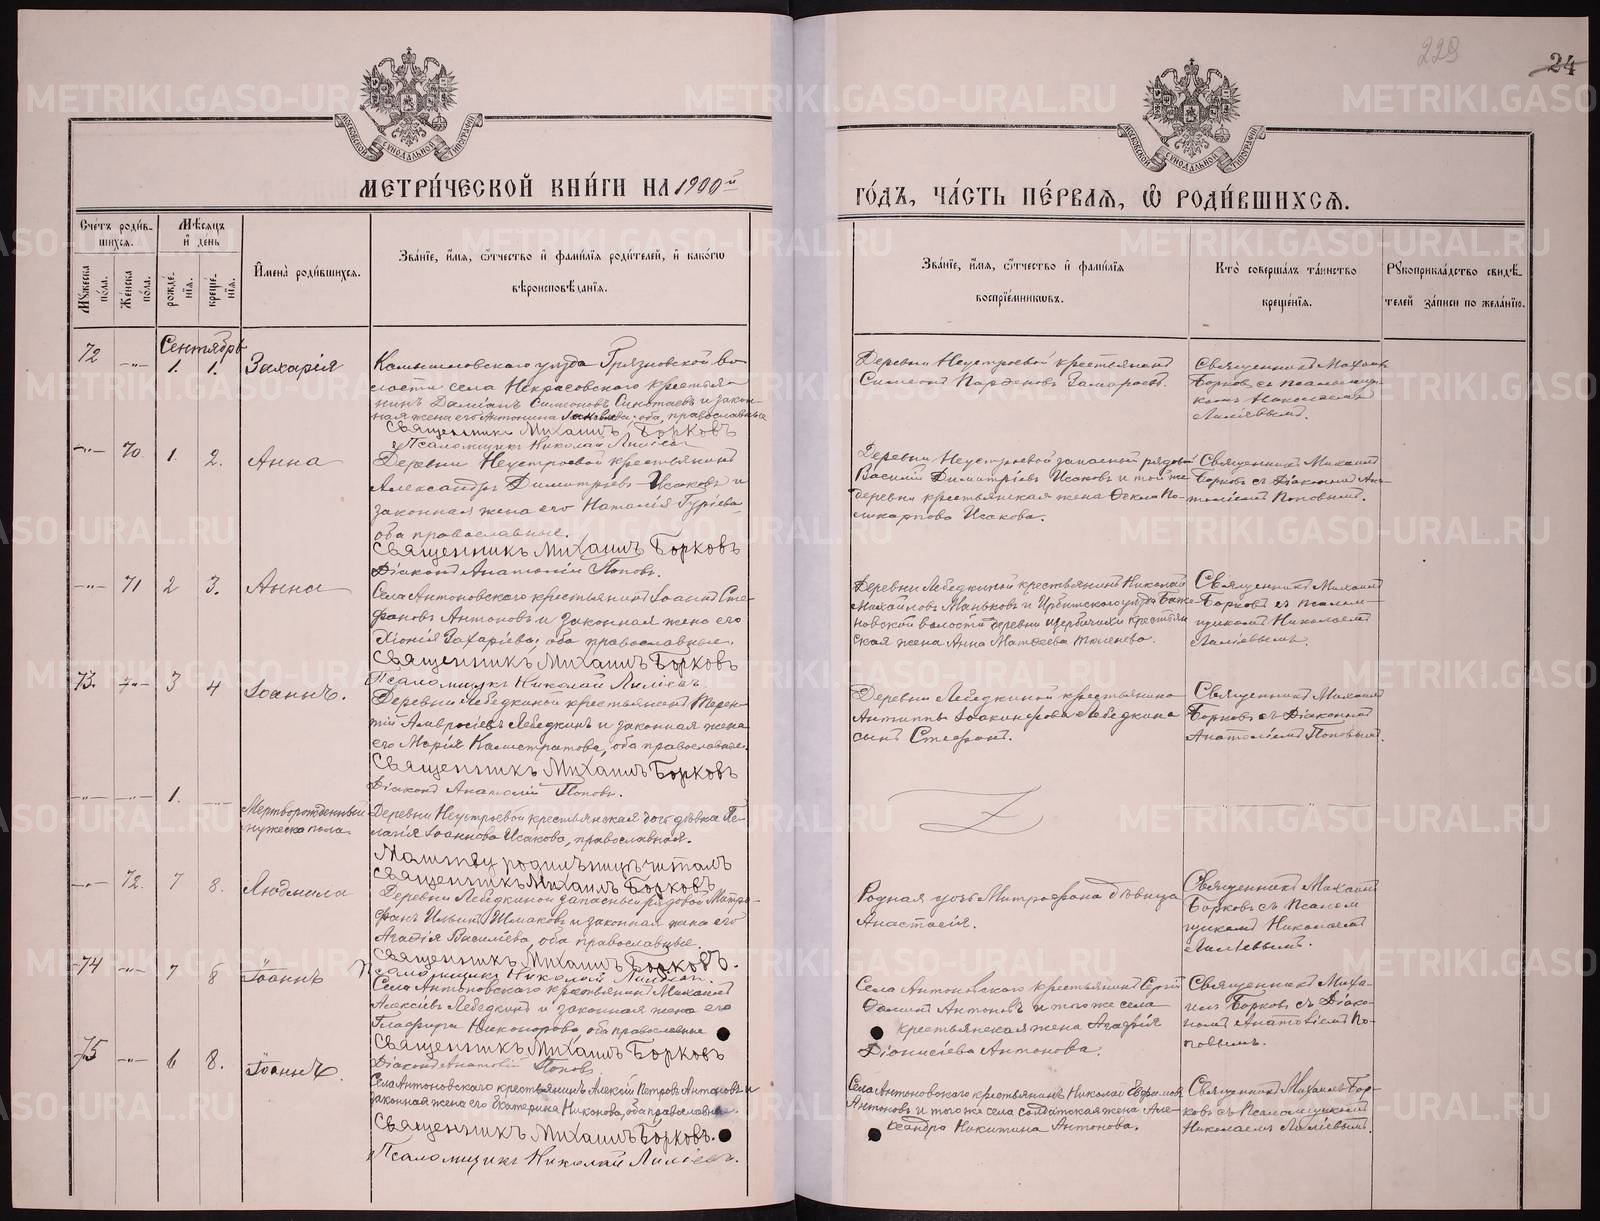 229
24
МОСКОВСКОЙ СѴНОДАЛЬНОЙ ТИПОГРАФІИ
МОСКОВСКОЙ СѴНОДАЛЬНОЙ ТИПОГРАФІИ
МЕТРИ́ЧЕСКОЙ КНИ́ГИ НА 1900й
ГО́ДЪ, ЧА́СТЬ ПЕ́РВАѦ, Ѡ҆ РОДИ́ВШИХСѦ.
Сче́тъ роди́вшихсѧ.
Мꙋжеска по́ла.
Же́нска по́ла.
Мѣ́сяцъ и де́нь
рожде́нїѧ.
креще́нїѧ.
И҆мена̀ роди́вшихсѧ.
Зва́нїе, и҆́мѧ, ѻ҆́тчество и҆ фами́лїѧ роди́телей, и҆ како́гѡ
вѣроисповѣ́данїѧ.
Зва́нїе, и҆́мѧ, ѻ҆́тчество и҆ фами́лїѧ
воспрїе́мникѡвъ.
Кто̀ соверша́лъ та́инство
креще́нїѧ.
Рꙋкоприкла́дство свидѣ́-
телей за́писи по жела́нїю.
Сентябрь
72 —"— 1. 1. Захарія
Камышловскаго уѣзда Грязновской во-
лости села Некрасовскаго крестья-
нинъ Даміанъ Симеоновъ и закон-
ная жена его Антонина оба православные
Священникъ Михаилъ Борковъ
Псаломщикъ Николай Лиліевъ
Деревни Неустроевой крестьянинъ
Симеонъ Парѳеновъ
Священникъ Михаилъ
Борковъ съ Псаломщи-
комъ Николаемъ
Лиліевымъ.
—"— 70. 1. 2. Анна
Деревни Неустроевой крестьянинъ
Александръ Димитріевъ Исаковъ и
законная жена его Наталія Гуріева,
оба православные.
Священникъ Михаилъ Борковъ
Діаконъ Анатолій Поповъ.
Деревни Неустроевой запасный рядовой
Василій Димитріевъ Исаковъ и той же
деревни крестьянская жена Ѳекла По-
ликарпова Исакова.
Священникъ Михаилъ
Борковъ съ Діакономъ Ана-
толіемъ Поповымъ.
—"— 71 2 3. Анна
Села Антоновскаго крестьянинъ Іоаннъ Сте-
фановъ Антоновъ и законная жена его
Хіонія Захаріева, оба православные.
Священникъ Михаилъ Борковъ
Псаломщикъ Николай Лиліевъ
Деревни Лебедкиной крестьянинъ Николай
Михайловъ Маньковъ и Ирбитскаго уѣзда
новской волости деревни крестьян-
ская жена Анна Матѳеева
Священникъ Михаилъ
Борковъ съ Псалом-
щикомъ Николаемъ
Лиліевымъ.
73. —"— 3 4 Іоаннъ.
Деревни Лебедкиной крестьянинъ Терен-
тій Амвросіевъ Лебедкинъ и законная жена
его Марія Калистратова, оба православные.
Священникъ Михаилъ Борковъ
Діаконъ Анатолій Поповъ.
Деревни Лебедкиной крестьянина
Антиппы Лебедкина
сынъ Стефанъ.
Священникъ Михаилъ
Борковъ съ Діакономъ
Анатоліемъ Поповымъ.
—"— —"— 1. —"—
Мертворожденный
мужеска пола
Деревни Неустроевой крестьянская дочь дѣвка Пе-
лагія Іоаннова Исакова, православная.
Молитву родильницѣ читалъ
Священникъ Михаилъ Борковъ
—"— 72. 7 8. Людмила
Деревни Лебедкиной запасный рядовой Митро-
фанъ Ильинъ Шмаковъ и законная жена его
Агафія Василіева, оба православные.
Священникъ Михаилъ Борковъ.
Псаломщикъ Николай Лиліевъ.
Родная дочь Митрофана дѣвица
Анастасія.
Священникъ Михаилъ
Борковъ съ Псалом
щикомъ Николаемъ
Лиліевымъ.
74 —"— 7 8 Іоаннъ
Села Антоновскаго крестьянинъ Михаилъ
Алексіевъ Лебедкинъ и законная жена его
Глафира Никанорова, оба православные
Священникъ Михаилъ Борковъ
Діаконъ Анатолій Поповъ
Села Антоновскаго крестьянинъ Сергій
Антоновъ и того же села
крестьянская жена Агафія
Діонисіева Антонова.
Священникъ Миха-
илъ Борковъ съ Діако-
номъ Анатоліемъ По-
повымъ.
75 —"— 6 8. Іоаннъ.
Села Антоновскаго крестьянинъ Алексій Петровъ Антоновъ и
законная жена его Екатерина Никонова, оба православные.
Священникъ Михаилъ Борковъ.
Псаломщикъ Николай Лиліевъ.
Села Антоновскаго крестьянинъ Николай Евфимовъ
Антоновъ и того же села солдатская жена Але-
ксандра Никитина Антонова.
Священникъ Михаилъ Бор-
ковъ съ Псаломщикомъ
Николаемъ Лиліевымъ.
METRIKI.GASO-URAL.RU